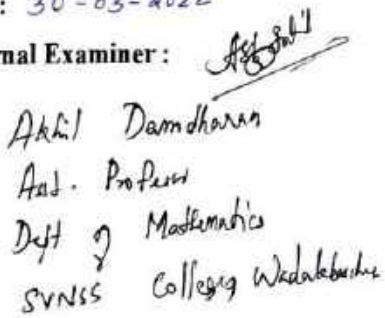 : 30-03-2022
nal Examiner :
Akhil Damodharan
Asst. Professor
Dept of Mathematics
SVNSS College